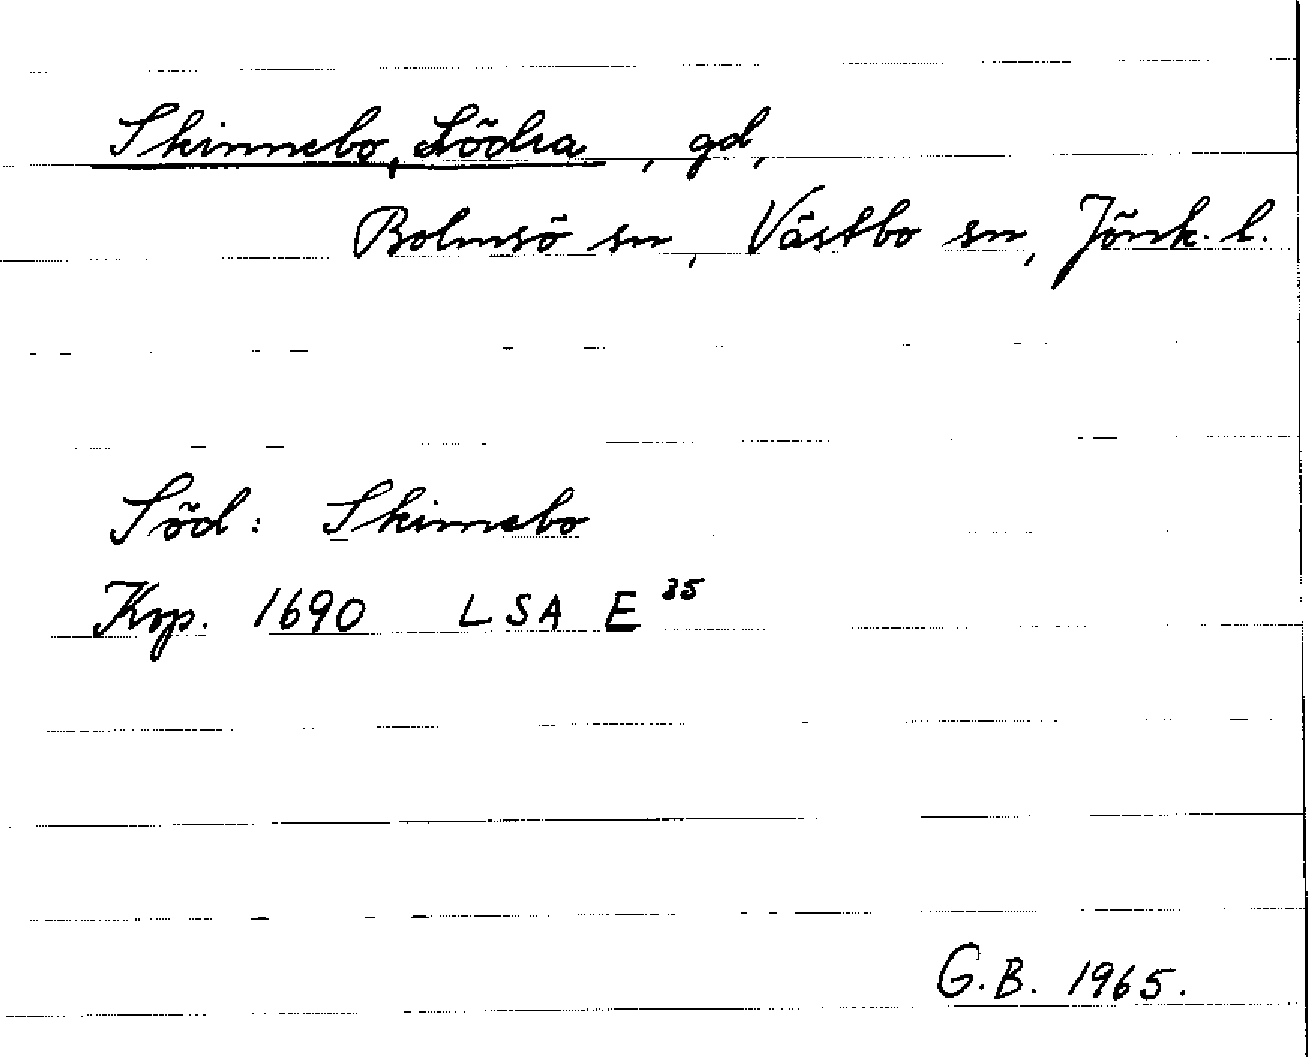 Skinnebo, Södra, gd,
Bolmsö sn, Västbo sn, Jönk. l.
Söd: Skinnebo
Krp. 1690 LSA E 35
G.B. 1965.